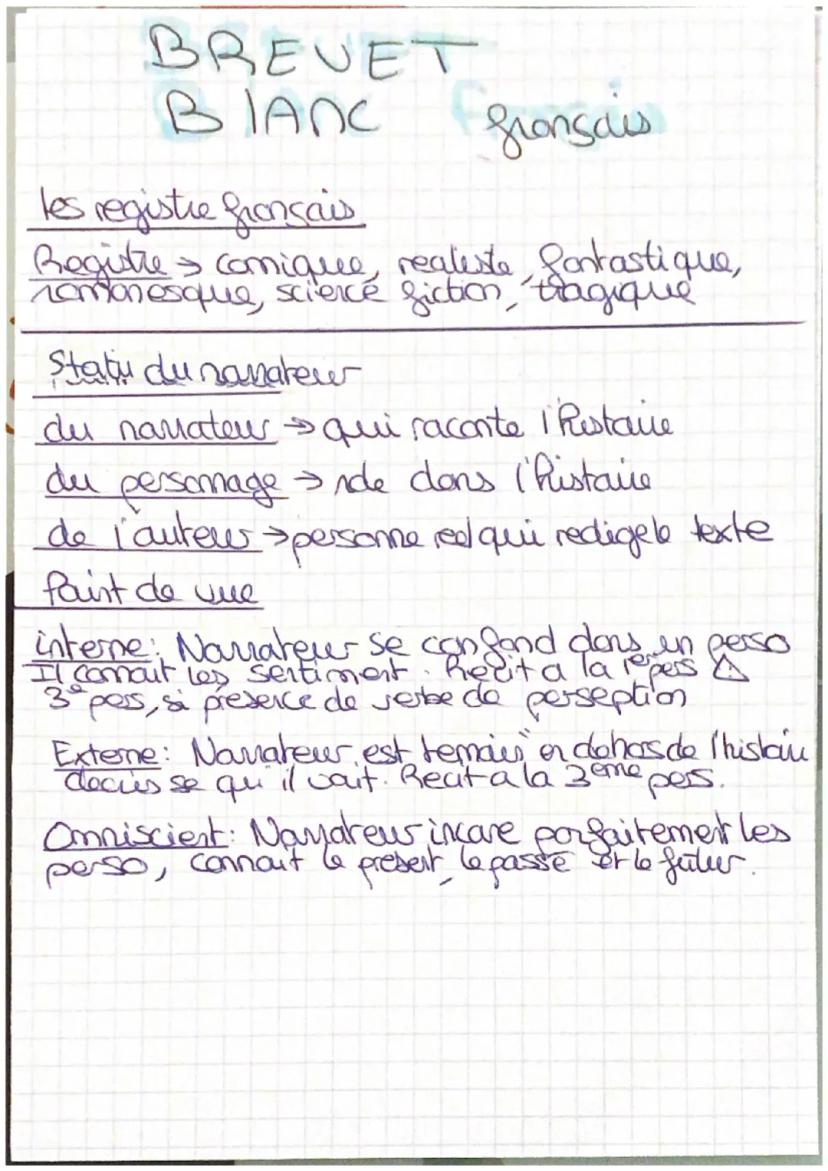 BREVET
BlANC français
les registre français
Registre → comique, realiste, fantastique,
romanesque, science fiction, tragique
Statu du narrateur
du narrateur → qui raconte l'histoire
du personnage → role dans l'histoire
de l'auteur → personne reel qui redige le texte
Point de vue
interne: Narrateur se confond dans un perso
Il connait les sentiment. Recit a la 1e pers ⚠
3e pers, si présence de verbe de perseption
Externe: Narrateur est temoin en dehors de l'histoire
decris se qu'il voit. Recit a la 3eme pers.
Omniscient: Narrateur incare parfaitement les
perso, connait le présent, le passé et le futur.